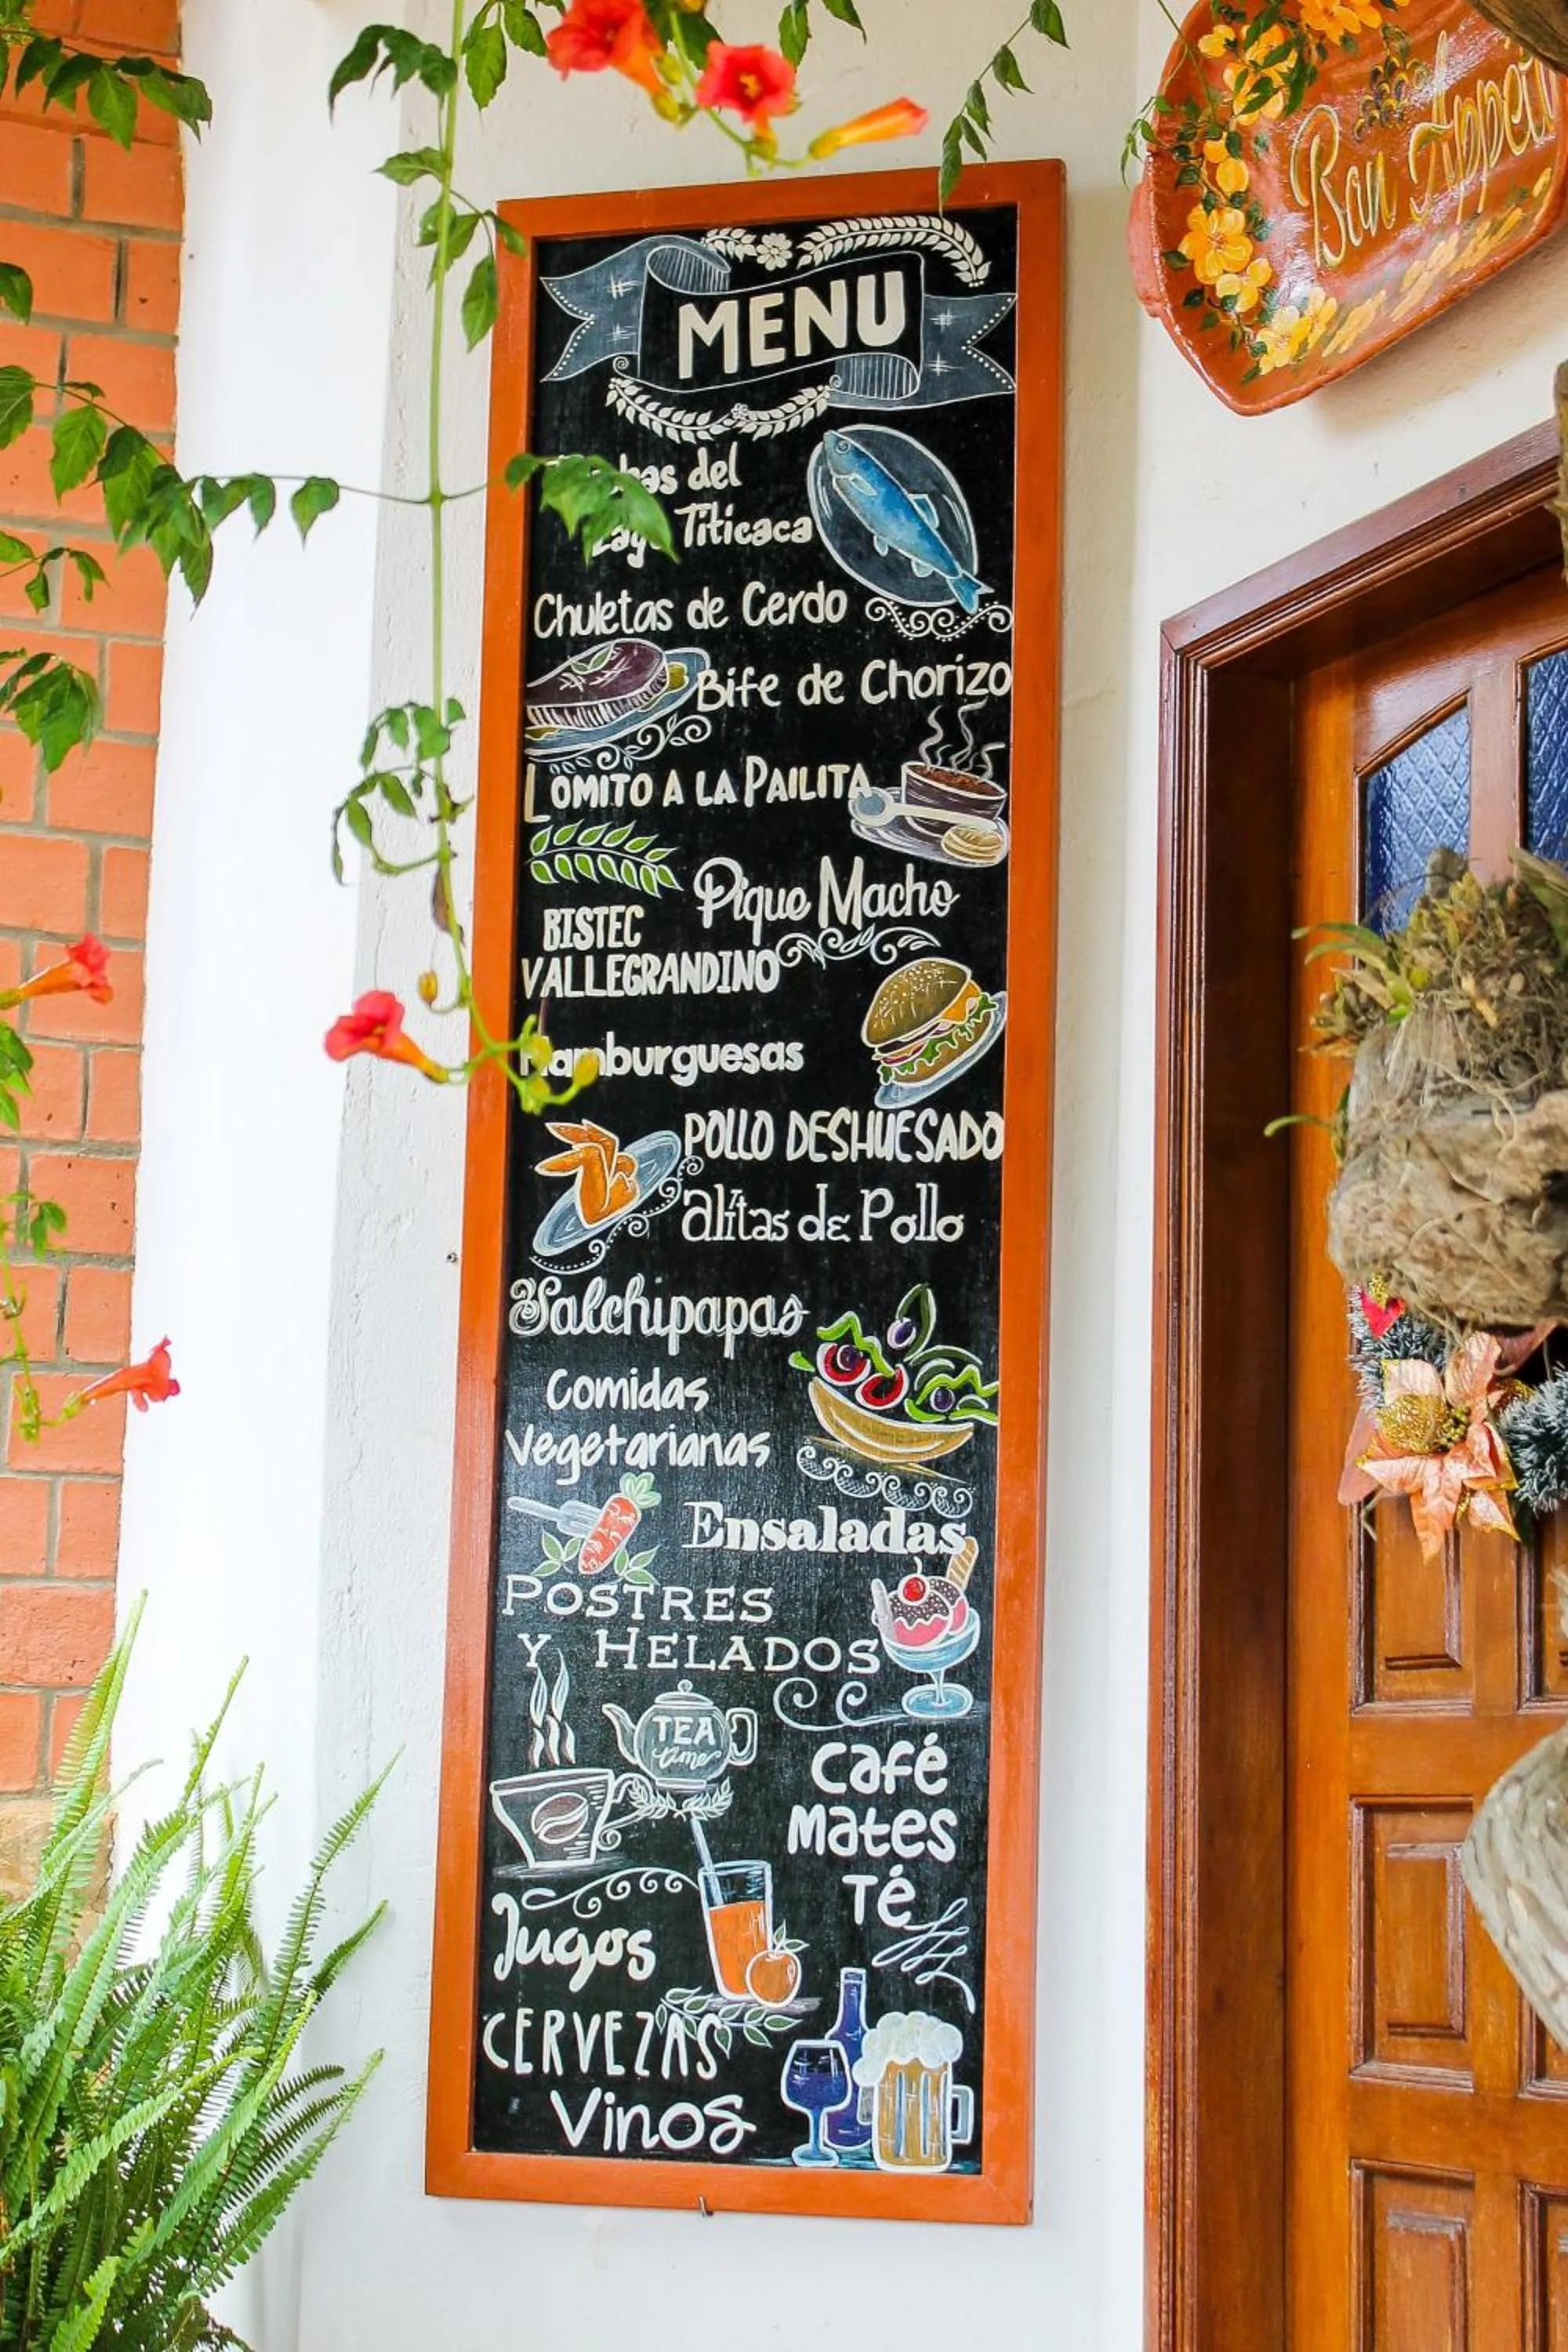 Bon Appetit
MENU
del
Lago Titicaca
Chuletas de Cerdo
Bife de Chorizo
LOMITO A LA PAILITA
Pique Macho
BISTEC
VALLEGRANDINO
Hamburguesas
POLLO DESHUESADO
alitas de Pollo
Salchipapas
Comidas
Vegetarianas
Ensaladas
POSTRES
Y HELADOS
TEA
time
Café
Mates
Té
Jugos
CERVEZAS
Vinos